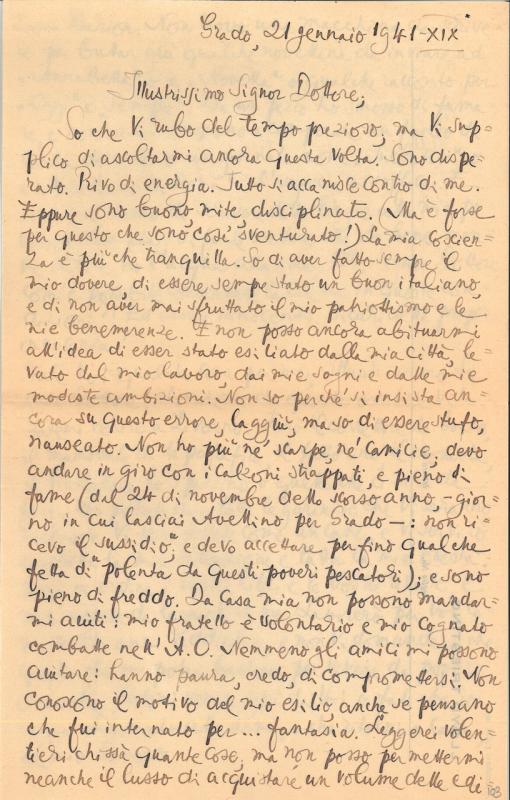 Grado, 21 gennaio 1941-XIX°
Illustrissimo Signor Dottore;
So che Vi rubo del tempo prezioso, ma Vi sup=
plico di ascoltarmi ancora questa volta. Sono dispe=
rato. Privo di energia. Tutto si accanisce contro di me.
Eppure sono buono, mite, disciplinato. (Ma è forse
per questo che sono, così, sventurato!) La mia coscien=
za è più che tranquilla. So di aver fatto sempre il
mio dovere, di essere sempre stato un buon italiano,
e di non aver mai sfruttato il mio patriottismo e le
mie benemerenze. E non posso ancora abituarmi
all'idea di esser stato esiliato dalla mia città, le=
vato dal mio lavoro, dai miei sogni e dalle mie
modeste ambizioni. Non so perché si insista an=
cora su questo errore, laggiù, ma so di essere stufo,
nauseato. Non ho più né scarpe, né camicie, devo
andare in giro con i calzoni strappati, e pieno di
fame (dal 24 di novembre dello scorso anno, - gior=
no in cui lasciai Avellino per Grado -: non ri=
cevo il sussidio", e devo accettare perfino qualche
fetta di "polenta" da questi poveri pescatori); e sono
pieno di freddo. Da casa mia non possono mandar=
mi aiuti: mio fratello è volontario e mio cognato
combatte nell'A.O. Nemmeno gli amici mi possono
aiutare: hanno paura, credo, di compromettersi. Non
conoscono il motivo del mio esilio, anche se pensano
che fui internato per... fantasia. Leggerei volen=
tieri chissà quante cose, ma non posso permettermi
neanche il lusso di acquistare un volume delle edi
103